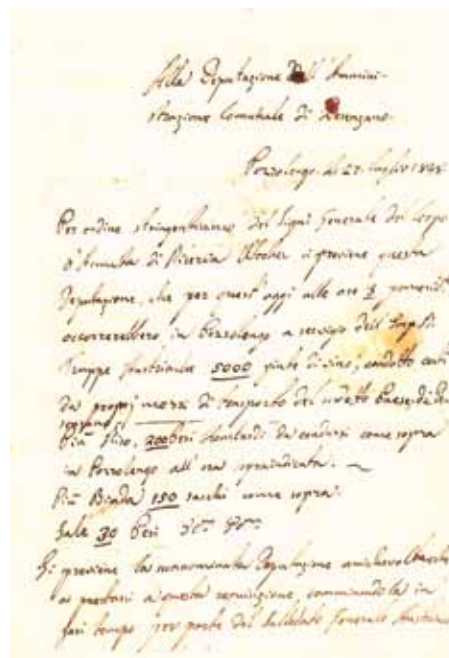 Alla Deputazione dell'Ammini-
strazione Comunale di Desenzano.
Pozzolengo. al 27. luglio 1848
Per ordine stringentissimo del Sign. Generale del Corpo
d'Armata di Riserva Wocher si previene questa
Deputazione, che per quest'oggi alle ore pomerid.
occorrerebbero in Pozzolengo a servigio dell'
Truppe Austriache 5000 pinte di vino, condotto
da proprj mezzi di trasporto del
Più Riso, 200 Pesi da condursi come sopra
in Pozzolengo all'ora sopraindicata.
Più Biada 150 sacchi come sopra.
Sale 30 Pesi
Si previene la Deputazione
a prestarsi a questa requisizione, comminandola in
pari tempo per parte del Generale